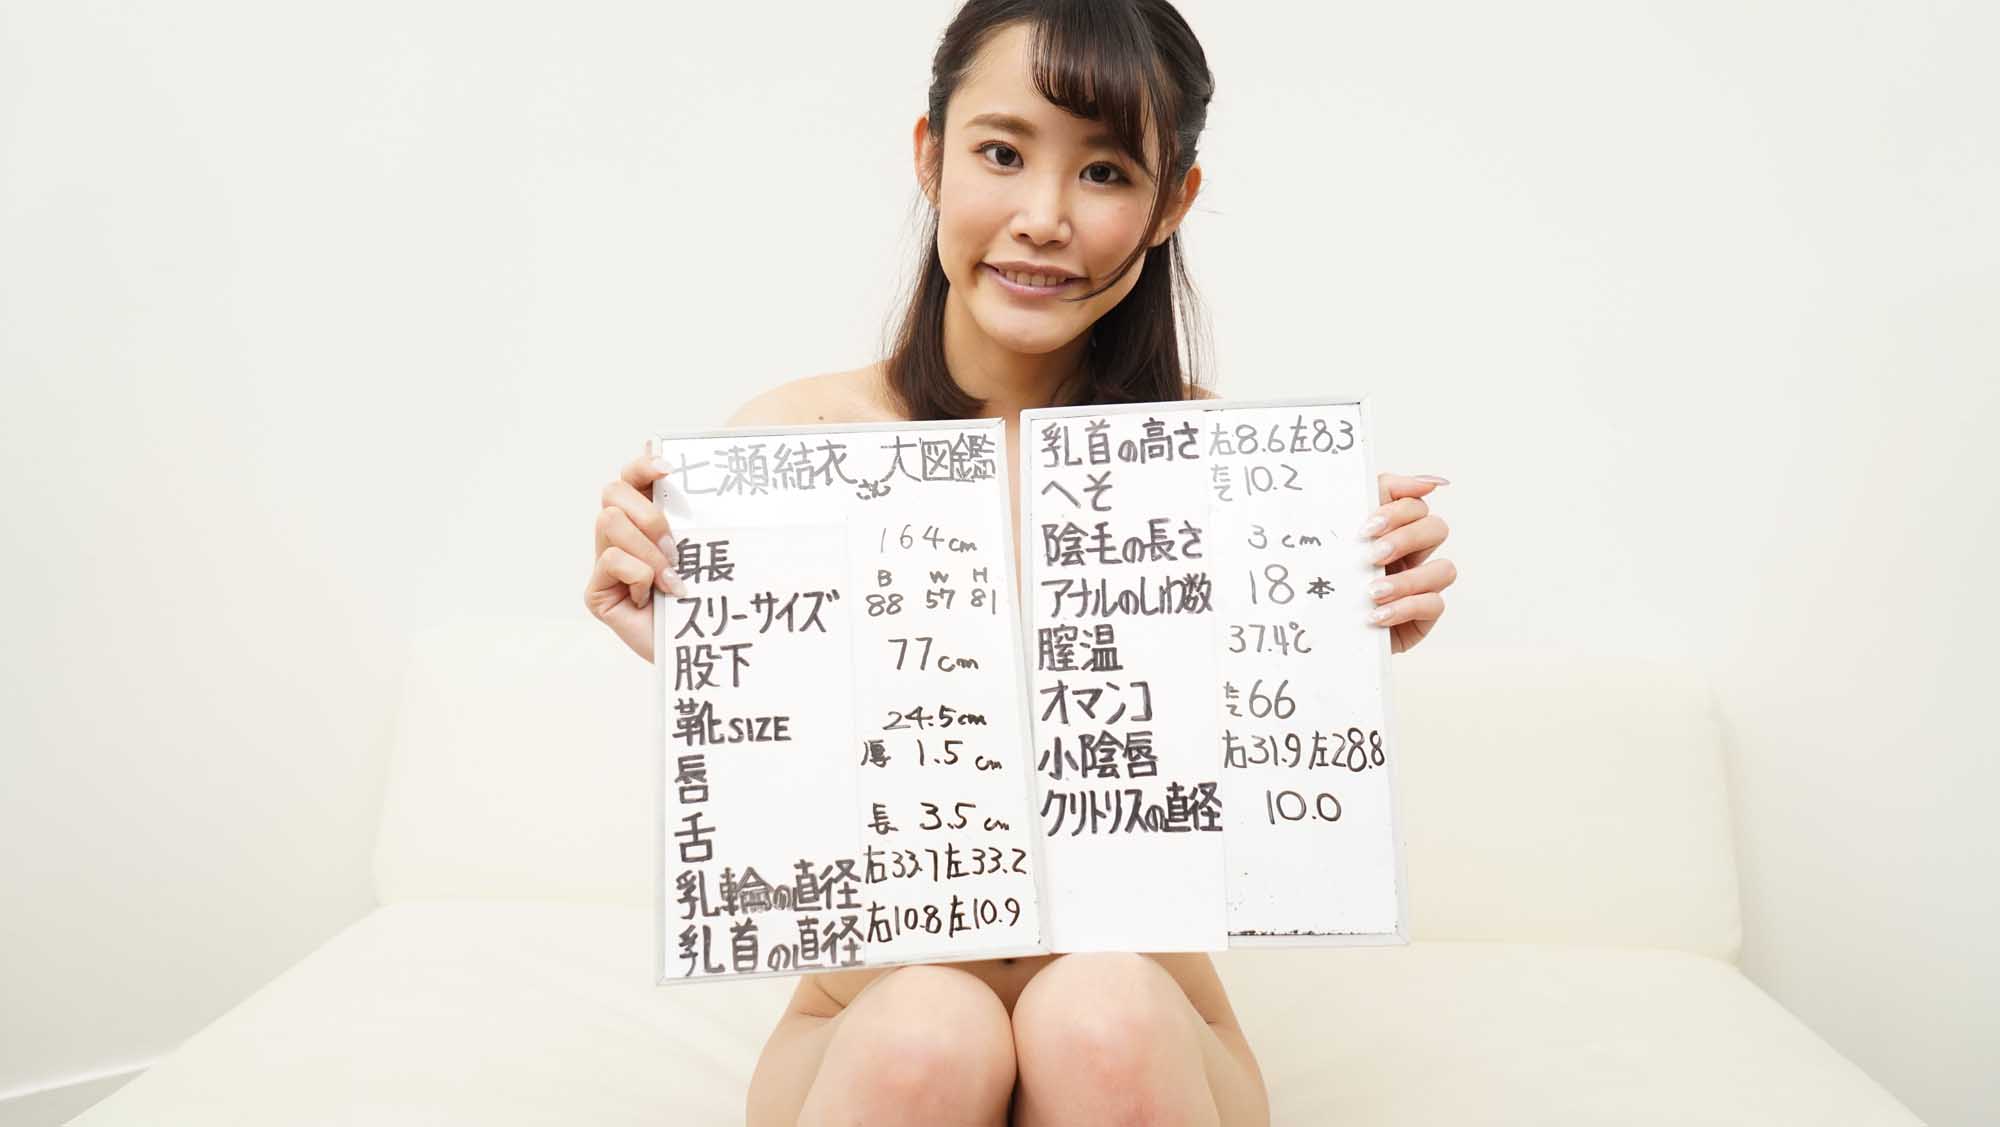 七瀬結衣さん大図鑑
身長 164cm
スリーサイズ B88 W57 H81
股下 77cm
靴SIZE 24.5cm
唇 厚 1.5cm
舌 長 3.5cm
乳輪の直径 右33.7左33.2
乳首の直径 右10.8左10.9
乳首の高さ 右8.6左8.3
へそ たて10.2
陰毛の長さ 3cm
アナルのしわ数 18本
膣温 37.4℃
オマンコ たて66
小陰唇 右31.9左28.8
クリトリスの直径 10.0